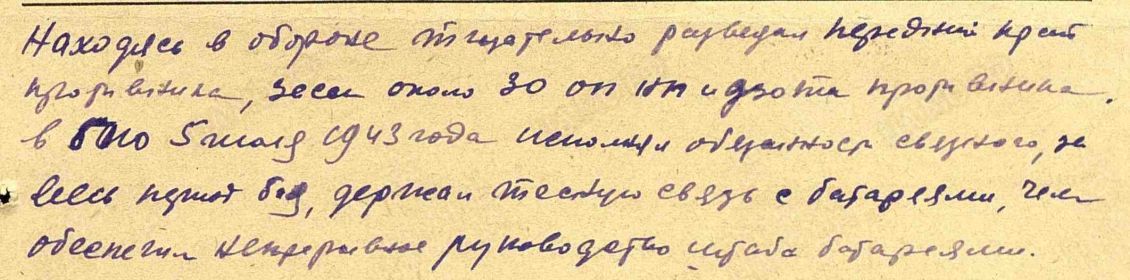 Находясь в обороне тщательно разведал передний край
противника, засек около 30 оп нп и дзота противника.
в бою 5 июля 1943 года исполнял обязанности связного, за
весь период боя, держал тесную связь с батареями, чем
обеспечил непрерывное руководство штаба батареями.